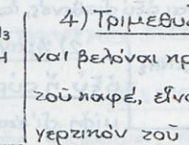 4) Τριμεθυ
ναί βελόναι πρ
τοῦ καφέ, εἶνα
γερτικόν τοῦ